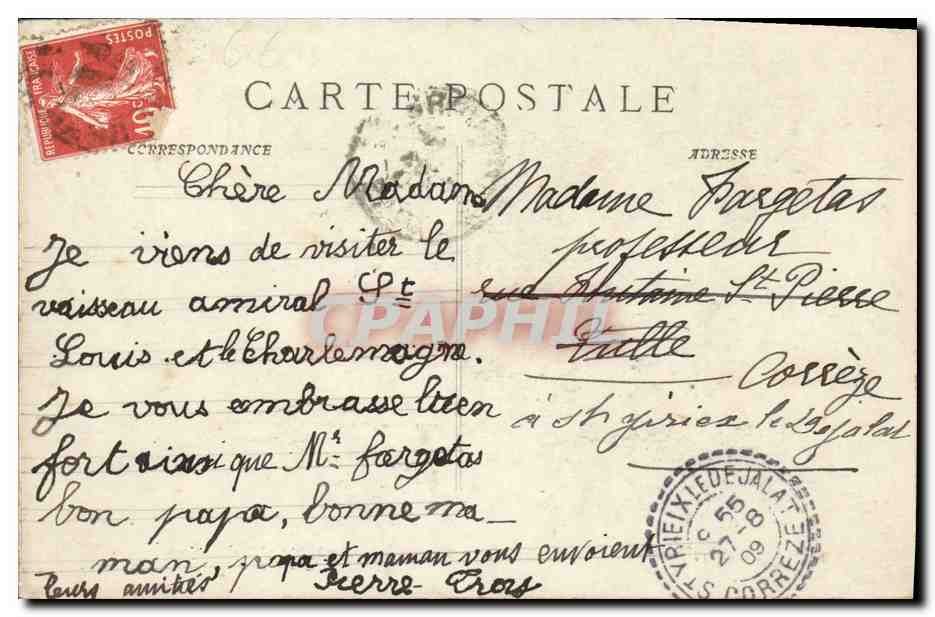 POSTES
REPUBLIQUE FRANÇAISE
10c
CARTE POSTALE
CORRESPONDANCE
ADRESSE
Chère Madame
Je viens de visiter le
vaisseau amiral St
Louis et le Charlemagne.
Je vous embrasse bien
fort ainsi que Mr fargetas
bon papa, bonne ma-
man, papa et maman vous envoient
leurs amitiés
Pierre
Madame Fargetas
professeur
rue Antoine St Pierre
Tulle
Corrèze
à St Yrieix le Dejalat
CPAPHIL
ST YRIEIX LE DEJALAT
C 55
27-8
09
CORREZE